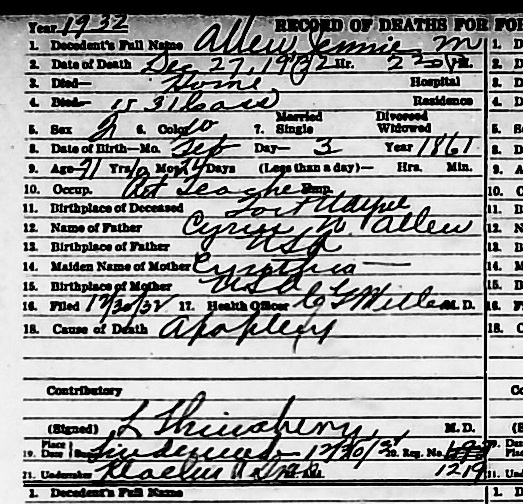 Year 1932 RECORD OF DEATHS FOR FOR
1. Decedent's Full Name Allen Jennie M
2. Date of Death Dec 27, 1932 Hr. M.
3. Died— Home Hospital
4. Died— 1531 Residence
5. Sex 6. Color W 7. Married Single Divorced Widowed
8. Date of Birth—Mo. Feb Day— 3 Year 1861
9. Age 71 Yrs. 10 Mo. 24 Days (Less than a day)— Hrs. Min.
10. Occup. Art Teacher Emp.
11. Birthplace of Deceased Fort Wayne
12. Name of Father Cyrus W. Allen
13. Birthplace of Father USA
14. Maiden Name of Mother Cynthia —
15. Birthplace of Mother USA
16. Filed 12/30/32 17. Health Officer M. D.
18. Cause of Death Apoplexy
Contributory
(Signed) L M. D.
19. Place Date Lindenwood 12/30/32 20. Reg. No.
21. Undertaker Klaehn & Sons 1219
1. Decedent's Full Name